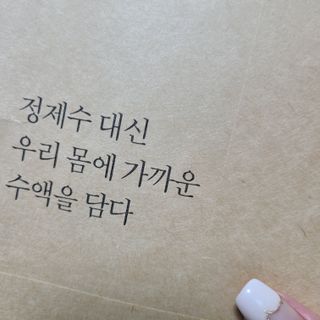 정제수 대신
우리 몸에 가까운
수액을 담다